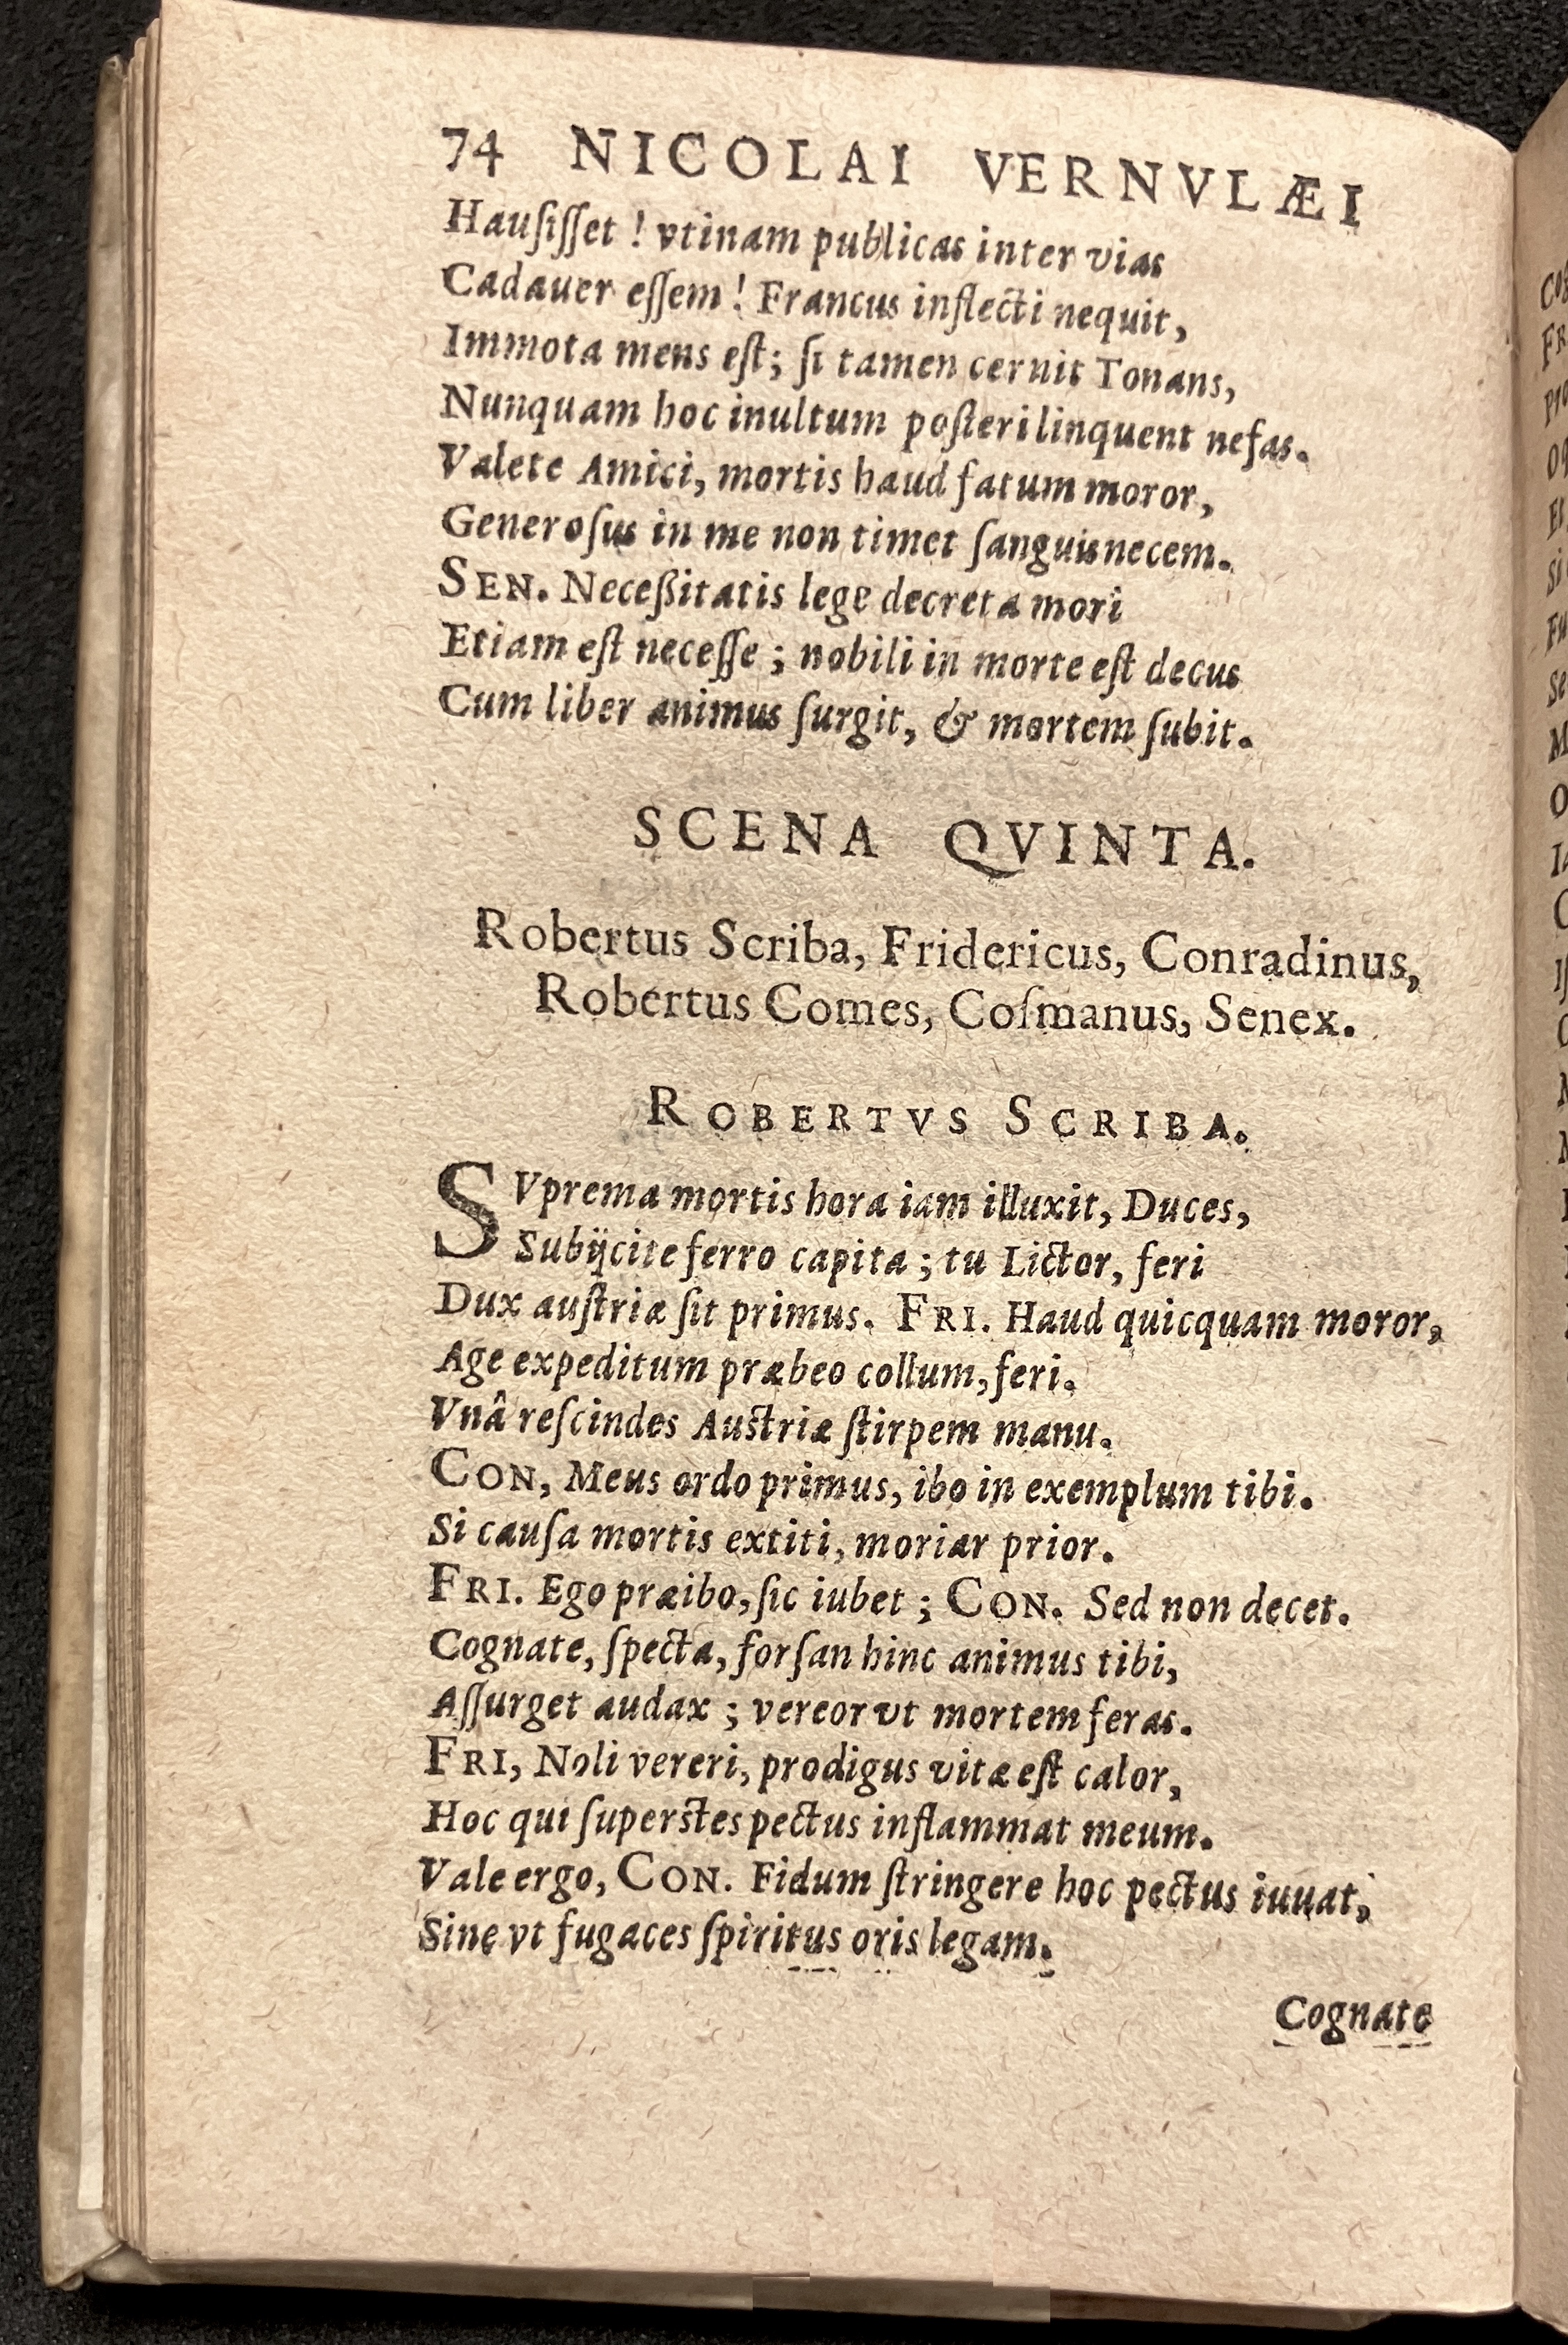 74 NICOLAI VERNVLÆI
Hauſiſſet ! vtinam publicas inter vias
Cadauer eſſem ! Francus inflecti nequit,
Immota mens eſt; ſi tamen cernit Tonans,
Nunquam hoc inultum poſteri linquent nefas.
Valete Amici, mortis haud fatum moror,
Generoſus in me non timet ſanguis necem.
SEN. Neceßitatis lege decreta mori
Etiam eſt neceſſe ; nobili in morte eſt decus
Cum liber animus ſurgit, & mortem ſubit.
SCENA QVINTA.
Robertus Scriba, Fridericus, Conradinus,
Robertus Comes, Coſmanus, Senex.
ROBERTVS SCRIBA.
SVprema mortis hora iam illuxit, Duces,
Subijcite ferro capita ; tu Lictor, feri
Dux auſtriæ ſit primus. FRI. Haud quicquam moror,
Age expeditum præbeo collum, feri.
Vnâ reſcindes Auſtriæ ſtirpem manu.
CON, Meus ordo primus, ibo in exemplum tibi.
Si cauſa mortis extiti, moriar prior.
FRI. Ego præibo, ſic iubet ; CON. Sed non decet.
Cognate, ſpecta, forſan hinc animus tibi,
Aſſurget audax ; vereor vt mortem feras.
FRI, Noli vereri, prodigus vitæ eſt calor,
Hoc qui ſuperſtes pectus inflammat meum.
Vale ergo, CON. Fidum ſtringere hoc pectus iuuat,
Sine vt fugaces ſpiritus oris legam.
Cognate